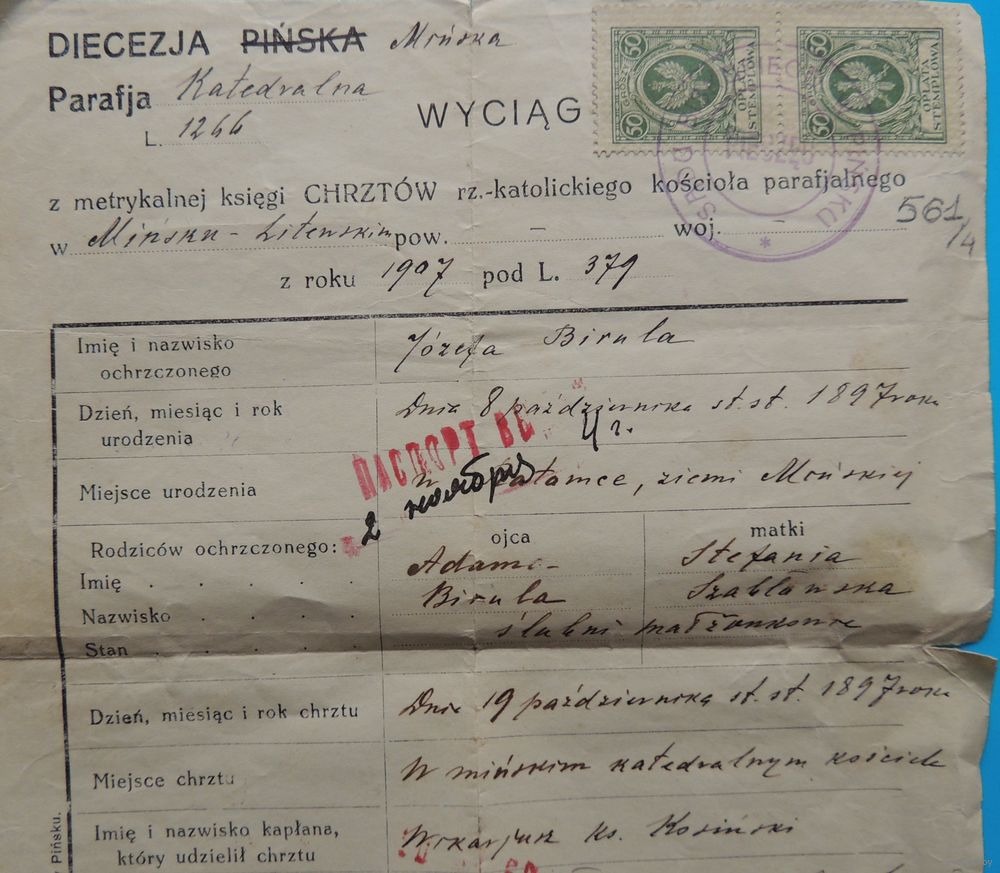 DIECEZJA PIŃSKA Mińska
Parafja Katedralna
L. 1266
WYCIĄG
50 GROSZY OPŁATA STEMPLOWA
50 GROSZY OPŁATA STEMPLOWA
z metrykalnej księgi CHRZTÓW rz.-katolickiego kościoła parafjalnego
w Mińsku-Litewskim pow. – woj. –
561/4
z roku 1907 pod L. 379
Imię i nazwisko ochrzczonego
Józefa Birula
Dzień, miesiąc i rok urodzenia
Dnia 8 października st. st. 1897 roku
ПАСПОРТ
2 ноября
Miejsce urodzenia
W ziemi Mińskiej
Rodziców ochrzczonego: ojca matki
Imię . . . . Adam Stefania
Nazwisko . . . . Birula Szabłowska
Stan . . . . ślubni małżonkowie
Dzień, miesiąc i rok chrztu
Dnia 19 października st. st. 1897 roku
Miejsce chrztu
W mińskim katedralnym kościele
Imię i nazwisko kapłana, który udzielił chrztu
Wikarjusz ks. Kosiński
Pińsku.